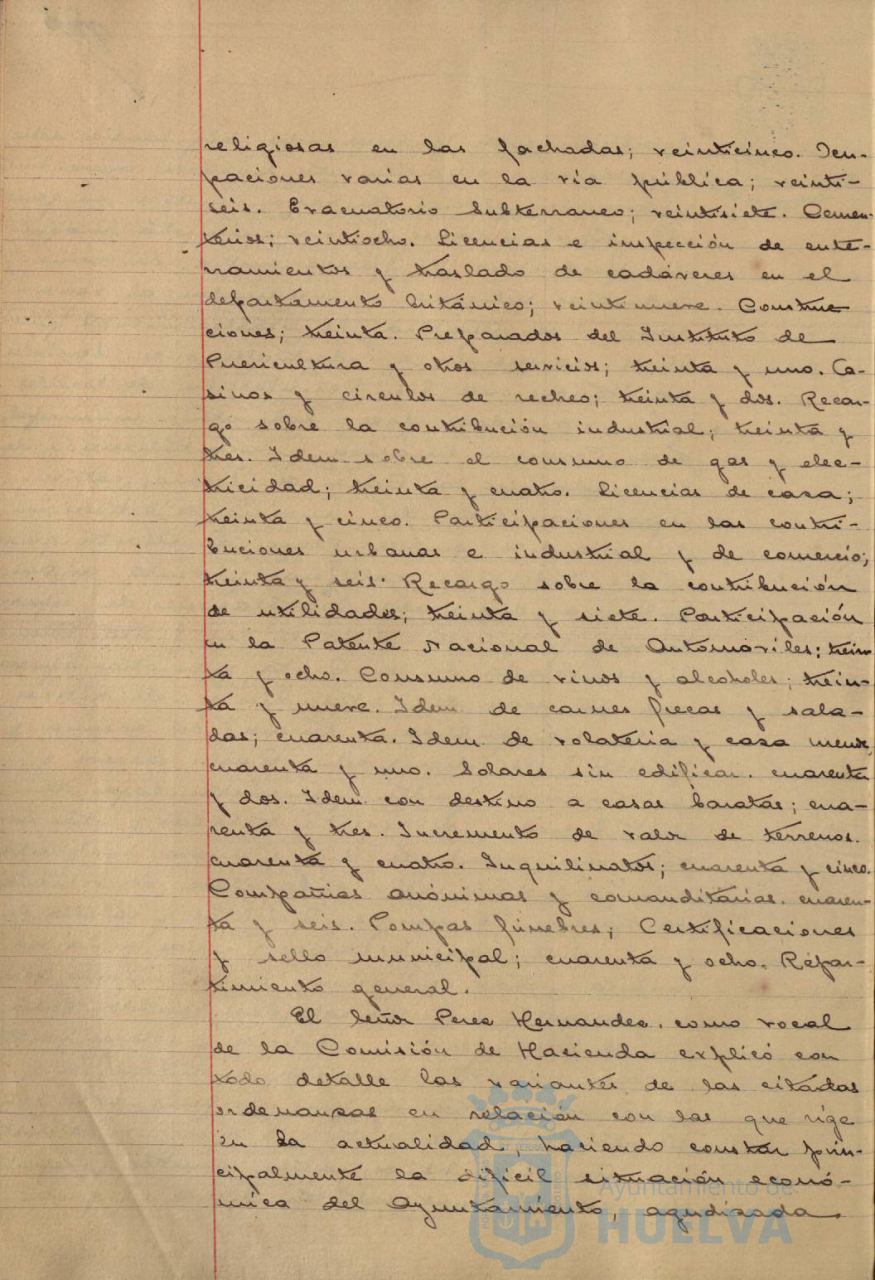 religiosas en las fachadas; veinticinco. Ocu-
paciones varias en la via pública; veinti-
seis. Evacuatorio Subterraneo; veintisiete. Cemen-
terios; veintiocho. Licencias e inspección de ente-
rramientos y traslado de cadáveres en el
departamento británico; veintinueve. Construc-
ciones; treinta. Preparados del Instituto de
Puericultura y otros servicios; treinta y uno. Ca-
sinos y circulos de recreo; treinta y dos. Recar-
go sobre la contribución industrial; treinta y
tres. Idem sobre el consumo de gas y elec-
tricidad; treinta y cuatro. Licencias de caza;
treinta y cinco. Participaciones en las contri-
buciones urbanas e industrial y de comercio;
treinta y seis. Recargo sobre la contribución
de utilidades; treinta y siete. Participación
en la Patente Nacional de Automóviles; trein
ta y ocho. Consumo de vinos y alcoholes; trein-
ta y nueve. Idem de carnes frecas y sala-
das; cuarenta. Idem de volateria y caza menor,
cuarenta y uno. Solares sin edificar. cuarenta
y dos. Idem con destino a casas baratas; cua-
renta y tres. Incremento de valor de terrenos.
cuarenta y cuatro. Inquilinatos; cuarenta y cinco.
Compañias anónimas y comanditarias. cuaren-
ta y seis. Pompas fúnebres; Certificaciones
y sello municipal; cuarenta y ocho. Repar-
timiento general.
El Señor Perez Hernandez, como vocal
de la Comisión de Hacienda explicó con
todo detalle las variantes de las citadas
ordenanzas en relación con las que rige
en la actualidad, haciendo constar prin-
cipalmente la dificil situación econó-
mica del Ayuntamiento, agudizada
Ayuntamiento de
HUELVA